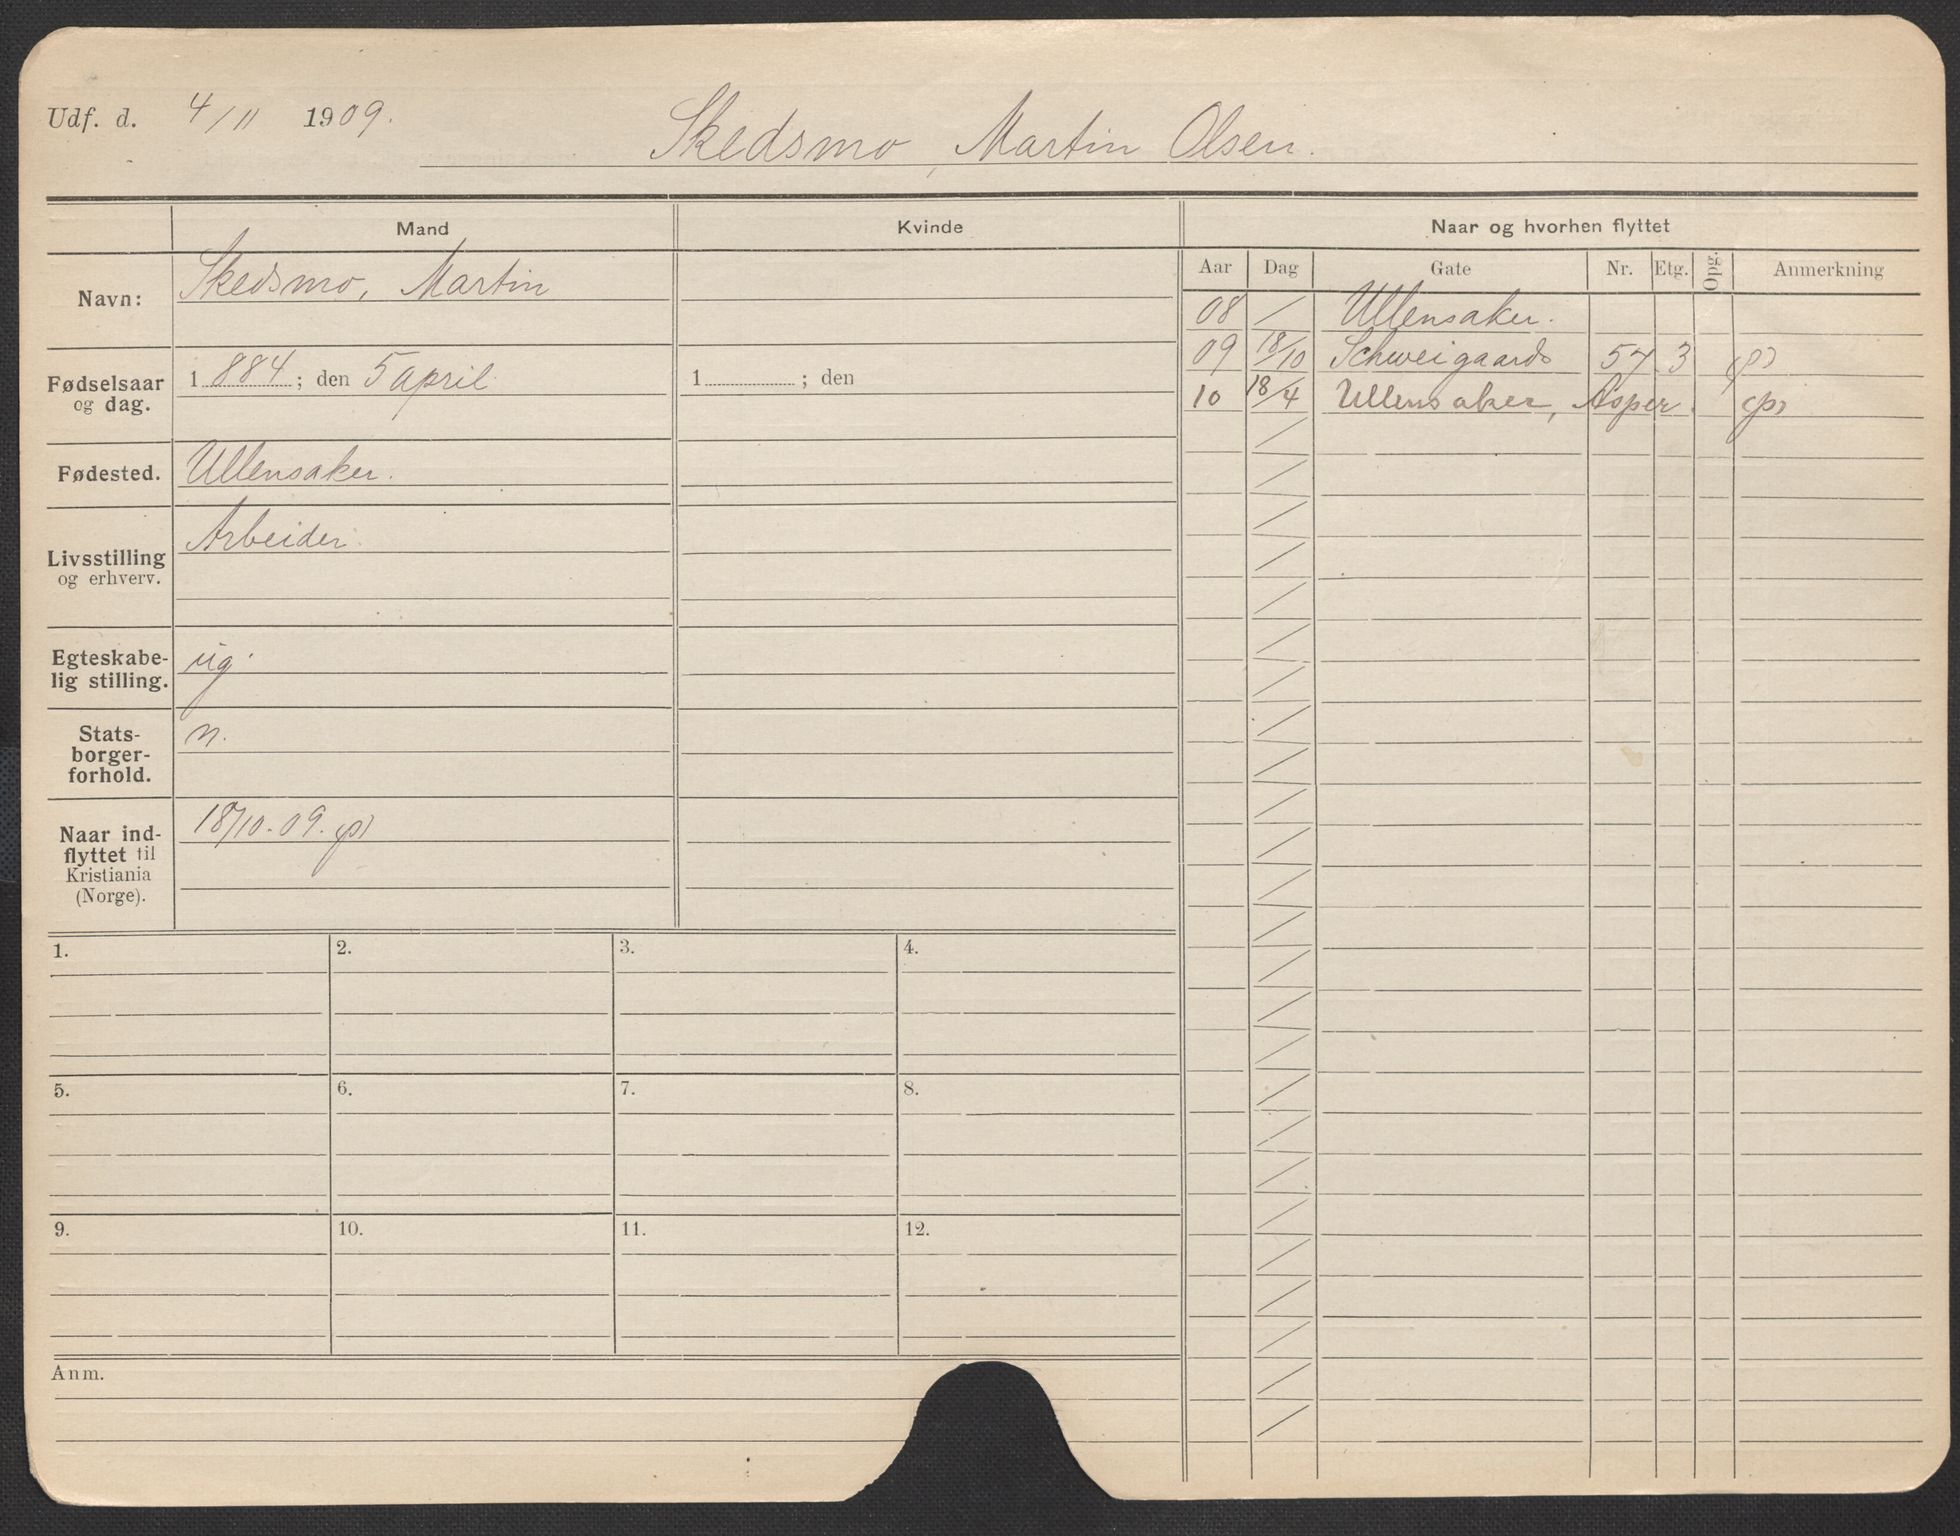 Udf. d. 4/11 1909.
Skedsmo, Martin Olsen.
Mand
Kvinde
Naar og hvorhen flyttet
Aar Dag Gate Nr. Etg. Opg. Anmerkning
Navn: Skedsmo, Martin
Fødselsaar og dag. 1884; den 5 april.
1 ; den
Fødested. Ullensaker.
Livsstilling og erhverv. Arbeider.
Egteskabe-
lig stilling. ug.
Stats-
borger-
forhold. n.
Naar ind-
flyttet til
Kristiania
(Norge). 18/10.09. (p)
08 / Ullensaker.
09 18/10 Schweigaards 57 3 (p)
10 18/4 Ullensaker, Asper. (p)
1. 2. 3. 4.
5. 6. 7. 8.
9. 10. 11. 12.
Anm.